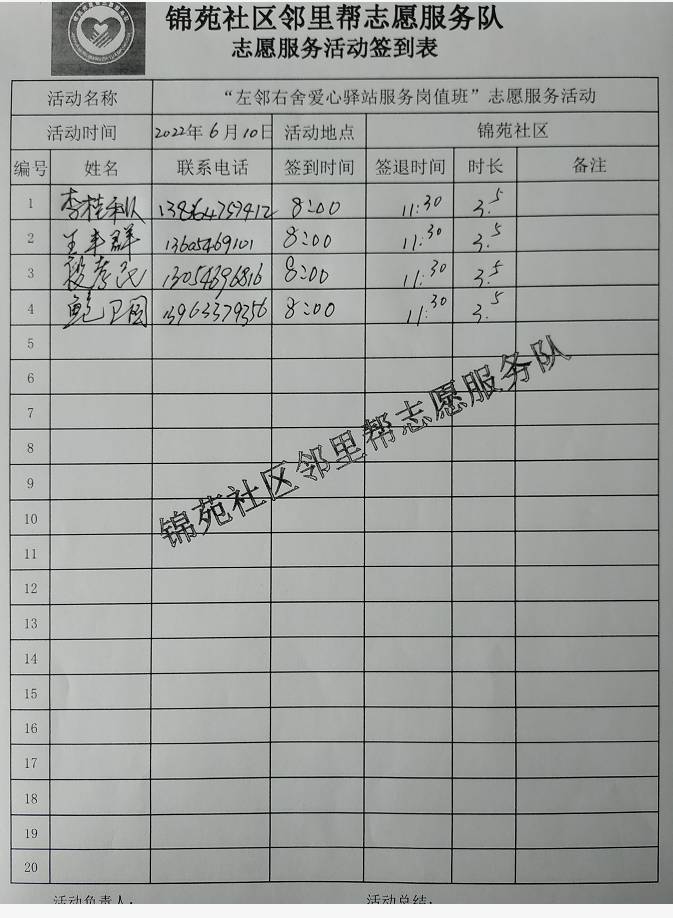 锦苑社区邻里帮志愿服务队
志愿服务活动签到表
活动名称 “左邻右舍爱心驿站服务岗值班”志愿服务活动
活动时间 2022年6月10日 活动地点 锦苑社区
编号 姓名 联系电话 签到时间 签退时间 时长 备注
1 李桂 8:00 11:30 3.5
2 王丰群 13605469101 8:00 11:30 3.5
3 段孝民 13054696816 8:00 11:30 3.5
4 鲍卫国 13963379356 8:00 11:30 3.5
5
6
7
8
9
10
11
12
13
14
15
16
17
18
19
20
锦苑社区邻里帮志愿服务队
活动负责人： 活动总结：